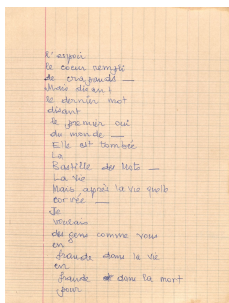 L'espoir
le coeur rempli
de crapauds —
Mais disant
le dernier mot
disant
le premier oui
du monde —
Elle est tombée
La
Bastille des Mots —
La Vie
Mais, après la vie quelle
corvée —
Je
voulais
des gens comme vous
en
fraude dans la vie
en
fraude dans la mort
pour